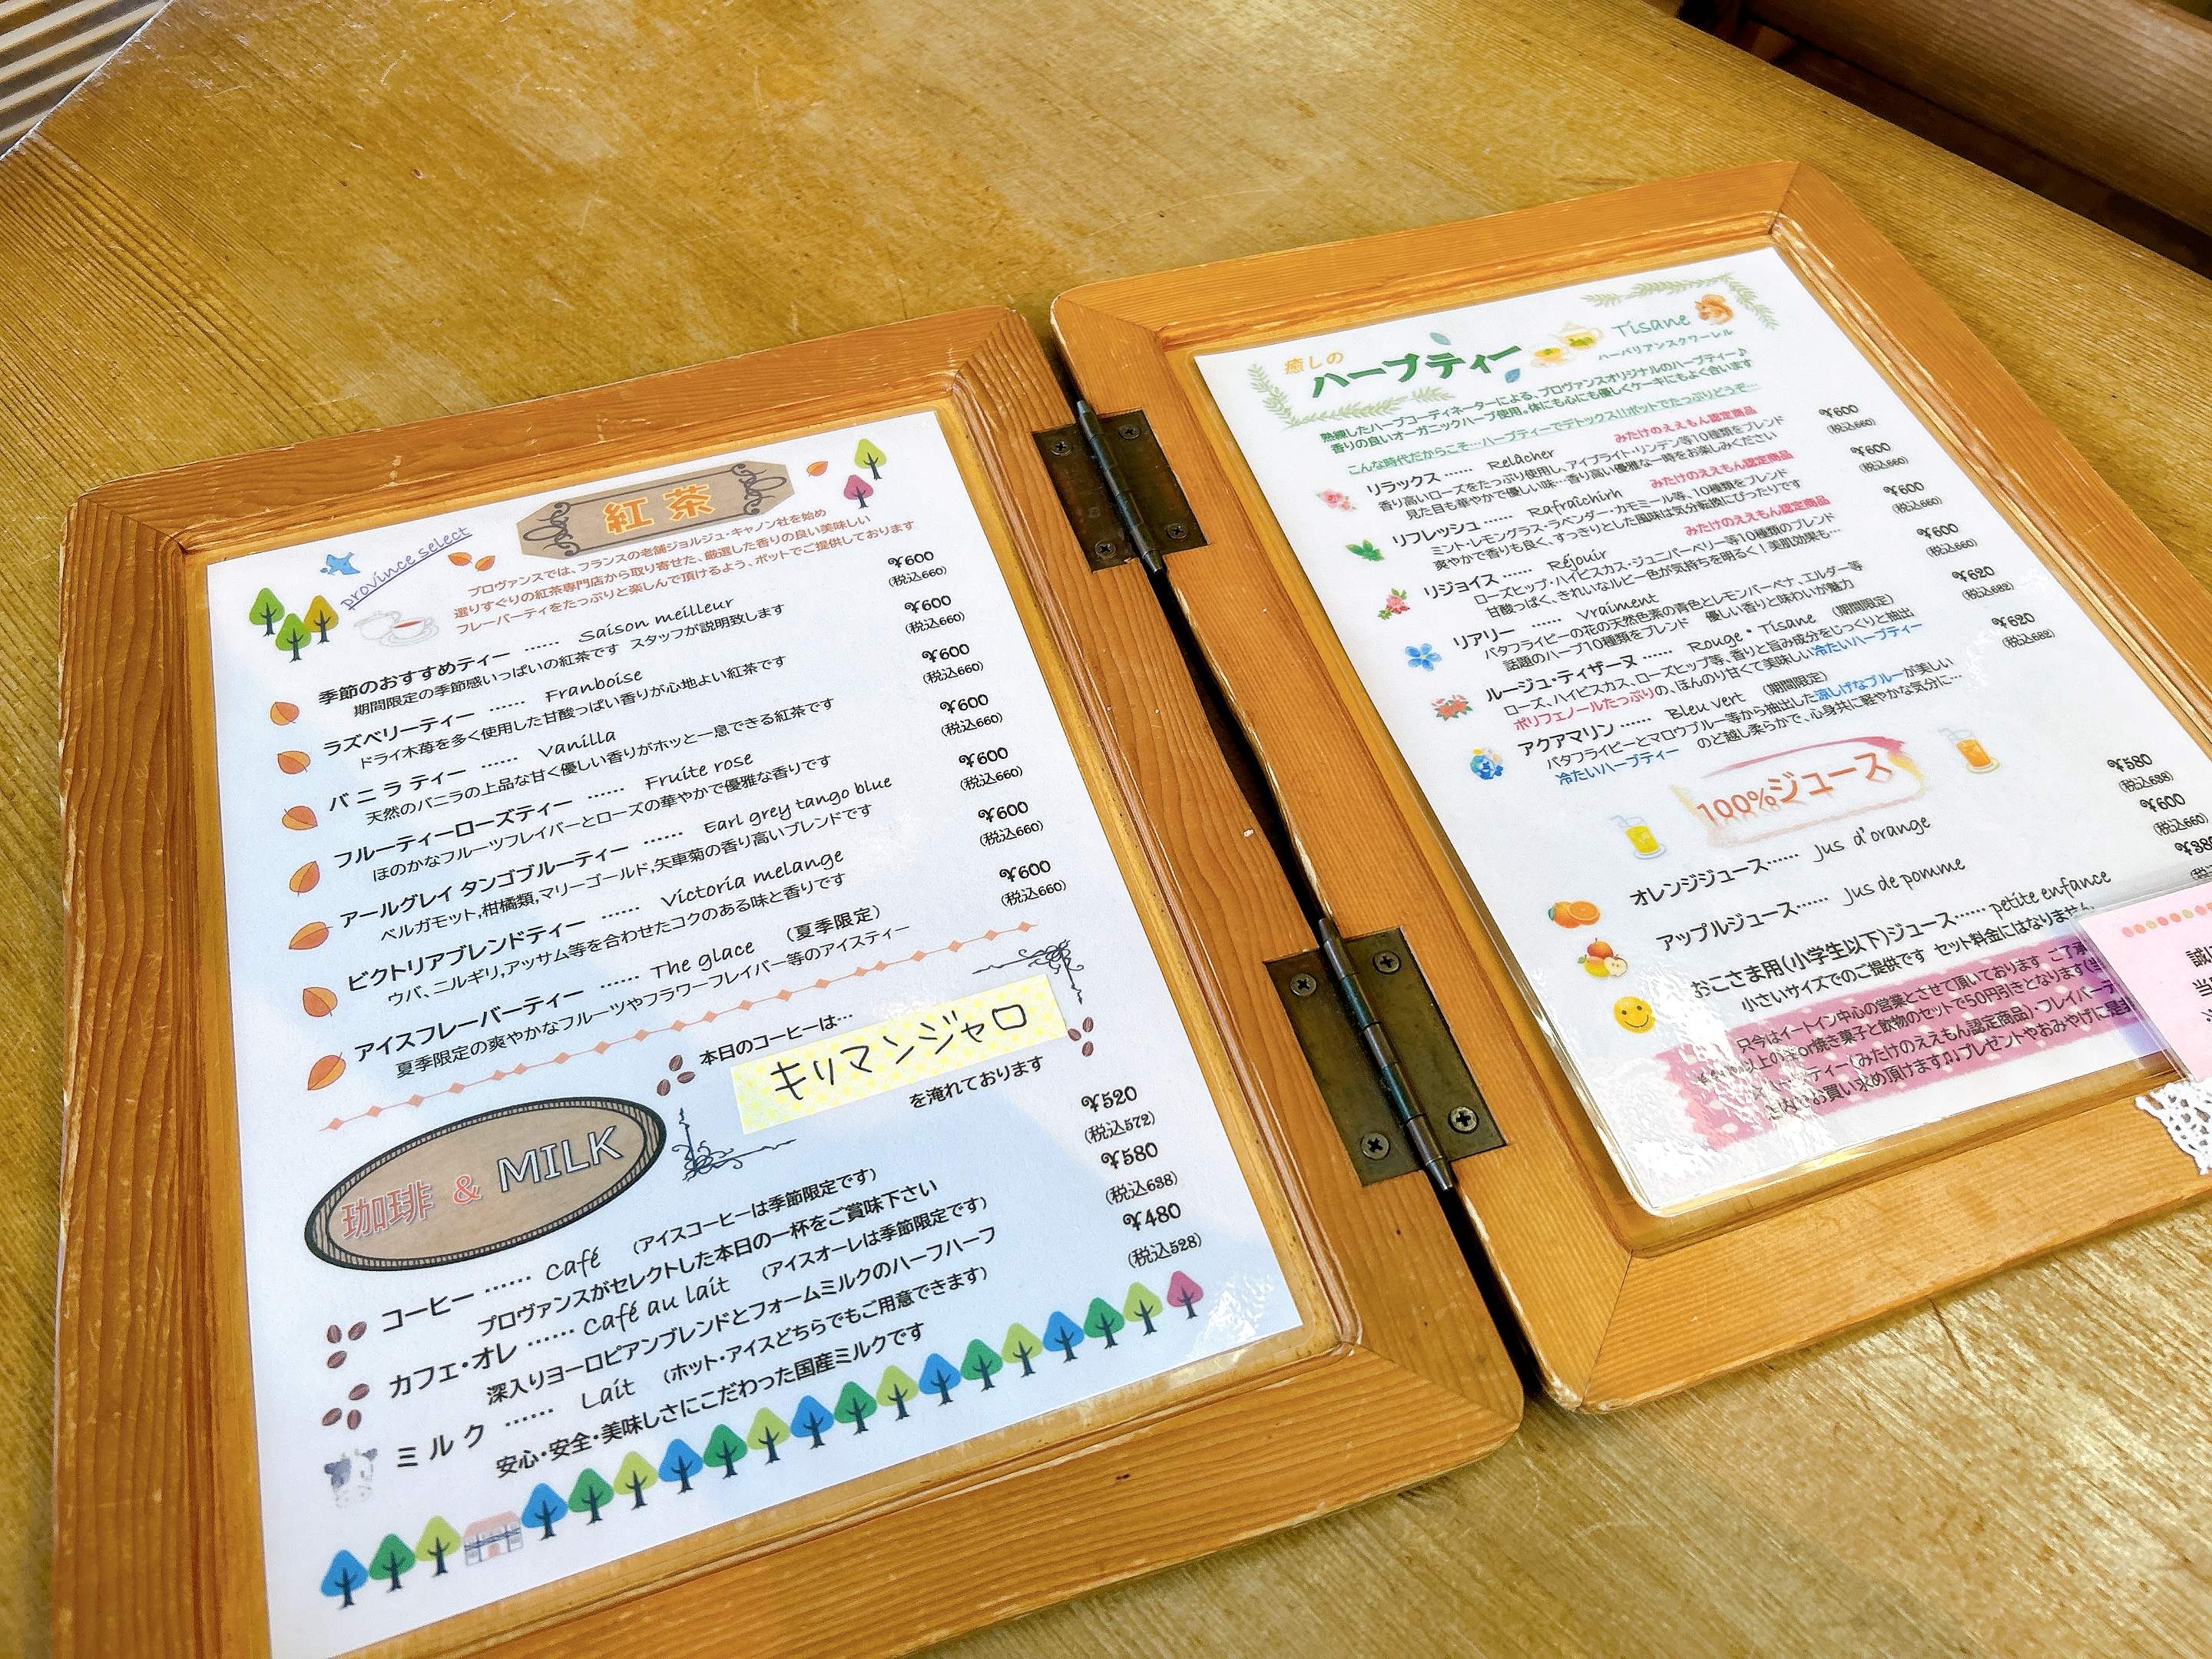 province select
紅茶
プロヴァンスでは、フランスの老舗ジョルジュ・キャノン社を始め
選りすぐりの紅茶専門店から取り寄せた、厳選した香りの良い美味しい
フレーバーティをたっぷりと楽しんで頂けるよう、ポットでご提供しております
季節のおすすめティー …… Saison meilleur 600
期間限定の季節感いっぱいの紅茶です スタッフが説明致します (税込660)
ラズベリーティー …… Franboise 600
ドライ木苺を多く使用した甘酸っぱい香りが心地よい紅茶です (税込660)
バニラティー …… Vanilla 600
天然のバニラの上品な甘く優しい香りがホッと一息できる紅茶です (税込660)
フルーティーローズティー …… Fruite rose 600
ほのかなフルーツフレイバーとローズの華やかで優雅な香りです (税込660)
アールグレイ タンゴブルーティー …… Earl grey tango blue 600
ベルガモット,柑橘類,マリーゴールド,矢車菊の香り高いブレンドです (税込660)
ビクトリアブレンドティー …… Victoria melange 600
ウバ、ニルギリ,アッサム等を合わせたコクのある味と香りです (税込660)
アイスフレーバーティー …… The glace (夏季限定) 600
夏季限定の爽やかなフルーツやフラワーフレイバー等のアイスティー (税込660)
本日のコーヒーは…
キリマンジャロ
を淹れております
珈琲 & MILK
コーヒー …… café (アイスコーヒーは季節限定です) 520
プロヴァンスがセレクトした本日の一杯をご賞味下さい (税込572)
カフェ・オレ …… café au lait (アイスオーレは季節限定です) 580
深入りヨーロピアンブレンドとフォームミルクのハーフハーフ (税込638)
ミルク …… Lait (ホット・アイスどちらでもご用意できます) 480
安心・安全・美味しさにこだわった国産ミルクです (税込528)
癒しの
ハーブティー Tisane
ハーバリアンスクワーレル
熟練したハーブコーディネーターによる、プロヴァンスオリジナルのハーブティー♪
香りの良いオーガニックハーブ使用。体にも心にも優しくケーキにもよく合います
こんな時代だからこそ…ハーブティーでデトックス!!ポットでたっぷりどうぞ…
みたけのええもん認定商品
リラックス …… Relâcher 600
香り高いローズをたっぷり使用し、アイブライト・リンデン等10種類をブレンド (税込660)
見た目も華やかで優しい味…香り高い優雅な一時をお楽しみください
みたけのええもん認定商品
リフレッシュ …… Rafraîchirh 600
ミント・レモングラス・ラベンダー・カモミール等、10種類をブレンド (税込660)
爽やかで香りも良く、すっきりとした風味は気分転換にぴったりです
みたけのええもん認定商品
リジョイス …… Réjouir 600
ローズヒップ・ハイビスカス・ジュニパーベリー等10種類のブレンド (税込660)
甘酸っぱく、きれいなルビー色が気持ちを明るく！美肌効果も…
リアリー …… Vraiment 600
バタフライピーの花の天然色素の青色とレモンバーベナ、エルダー等 (税込660)
話題のハーブ10種類をブレンド 優しい香りと味わいが魅力
ルージュ・ティザーヌ …… Rouge・Tisane (期間限定) 620
ローズ、ハイビスカス、ローズヒップ等、香りと旨み成分をじっくりと抽出 (税込682)
ポリフェノールたっぷりの、ほんのり甘くて美味しい冷たいハーブティー
アクアマリン …… Bleu vert (期間限定) 620
バタフライピーとマロウブルー等から抽出した涼しげなブルーが美しい (税込682)
冷たいハーブティー のど越し柔らかで、心身共に軽やかな気分に…
100%ジュース
オレンジジュース …… Jus d'orange 580
(税込638)
アップルジュース …… Jus de pomme 600
(税込660)
おこさま用(小学生以下)ジュース …… petite enfance
小さいサイズでのご提供です セット料金にはなりません
只今はイートイン中心の営業とさせて頂いております ご了承
以上の or焼き菓子と飲物のセットで50円引きとなります
ティー(みたけのええもん認定商品)・フレイバーテ
お買い求め頂けます♫♪プレゼントやおみやげに是非